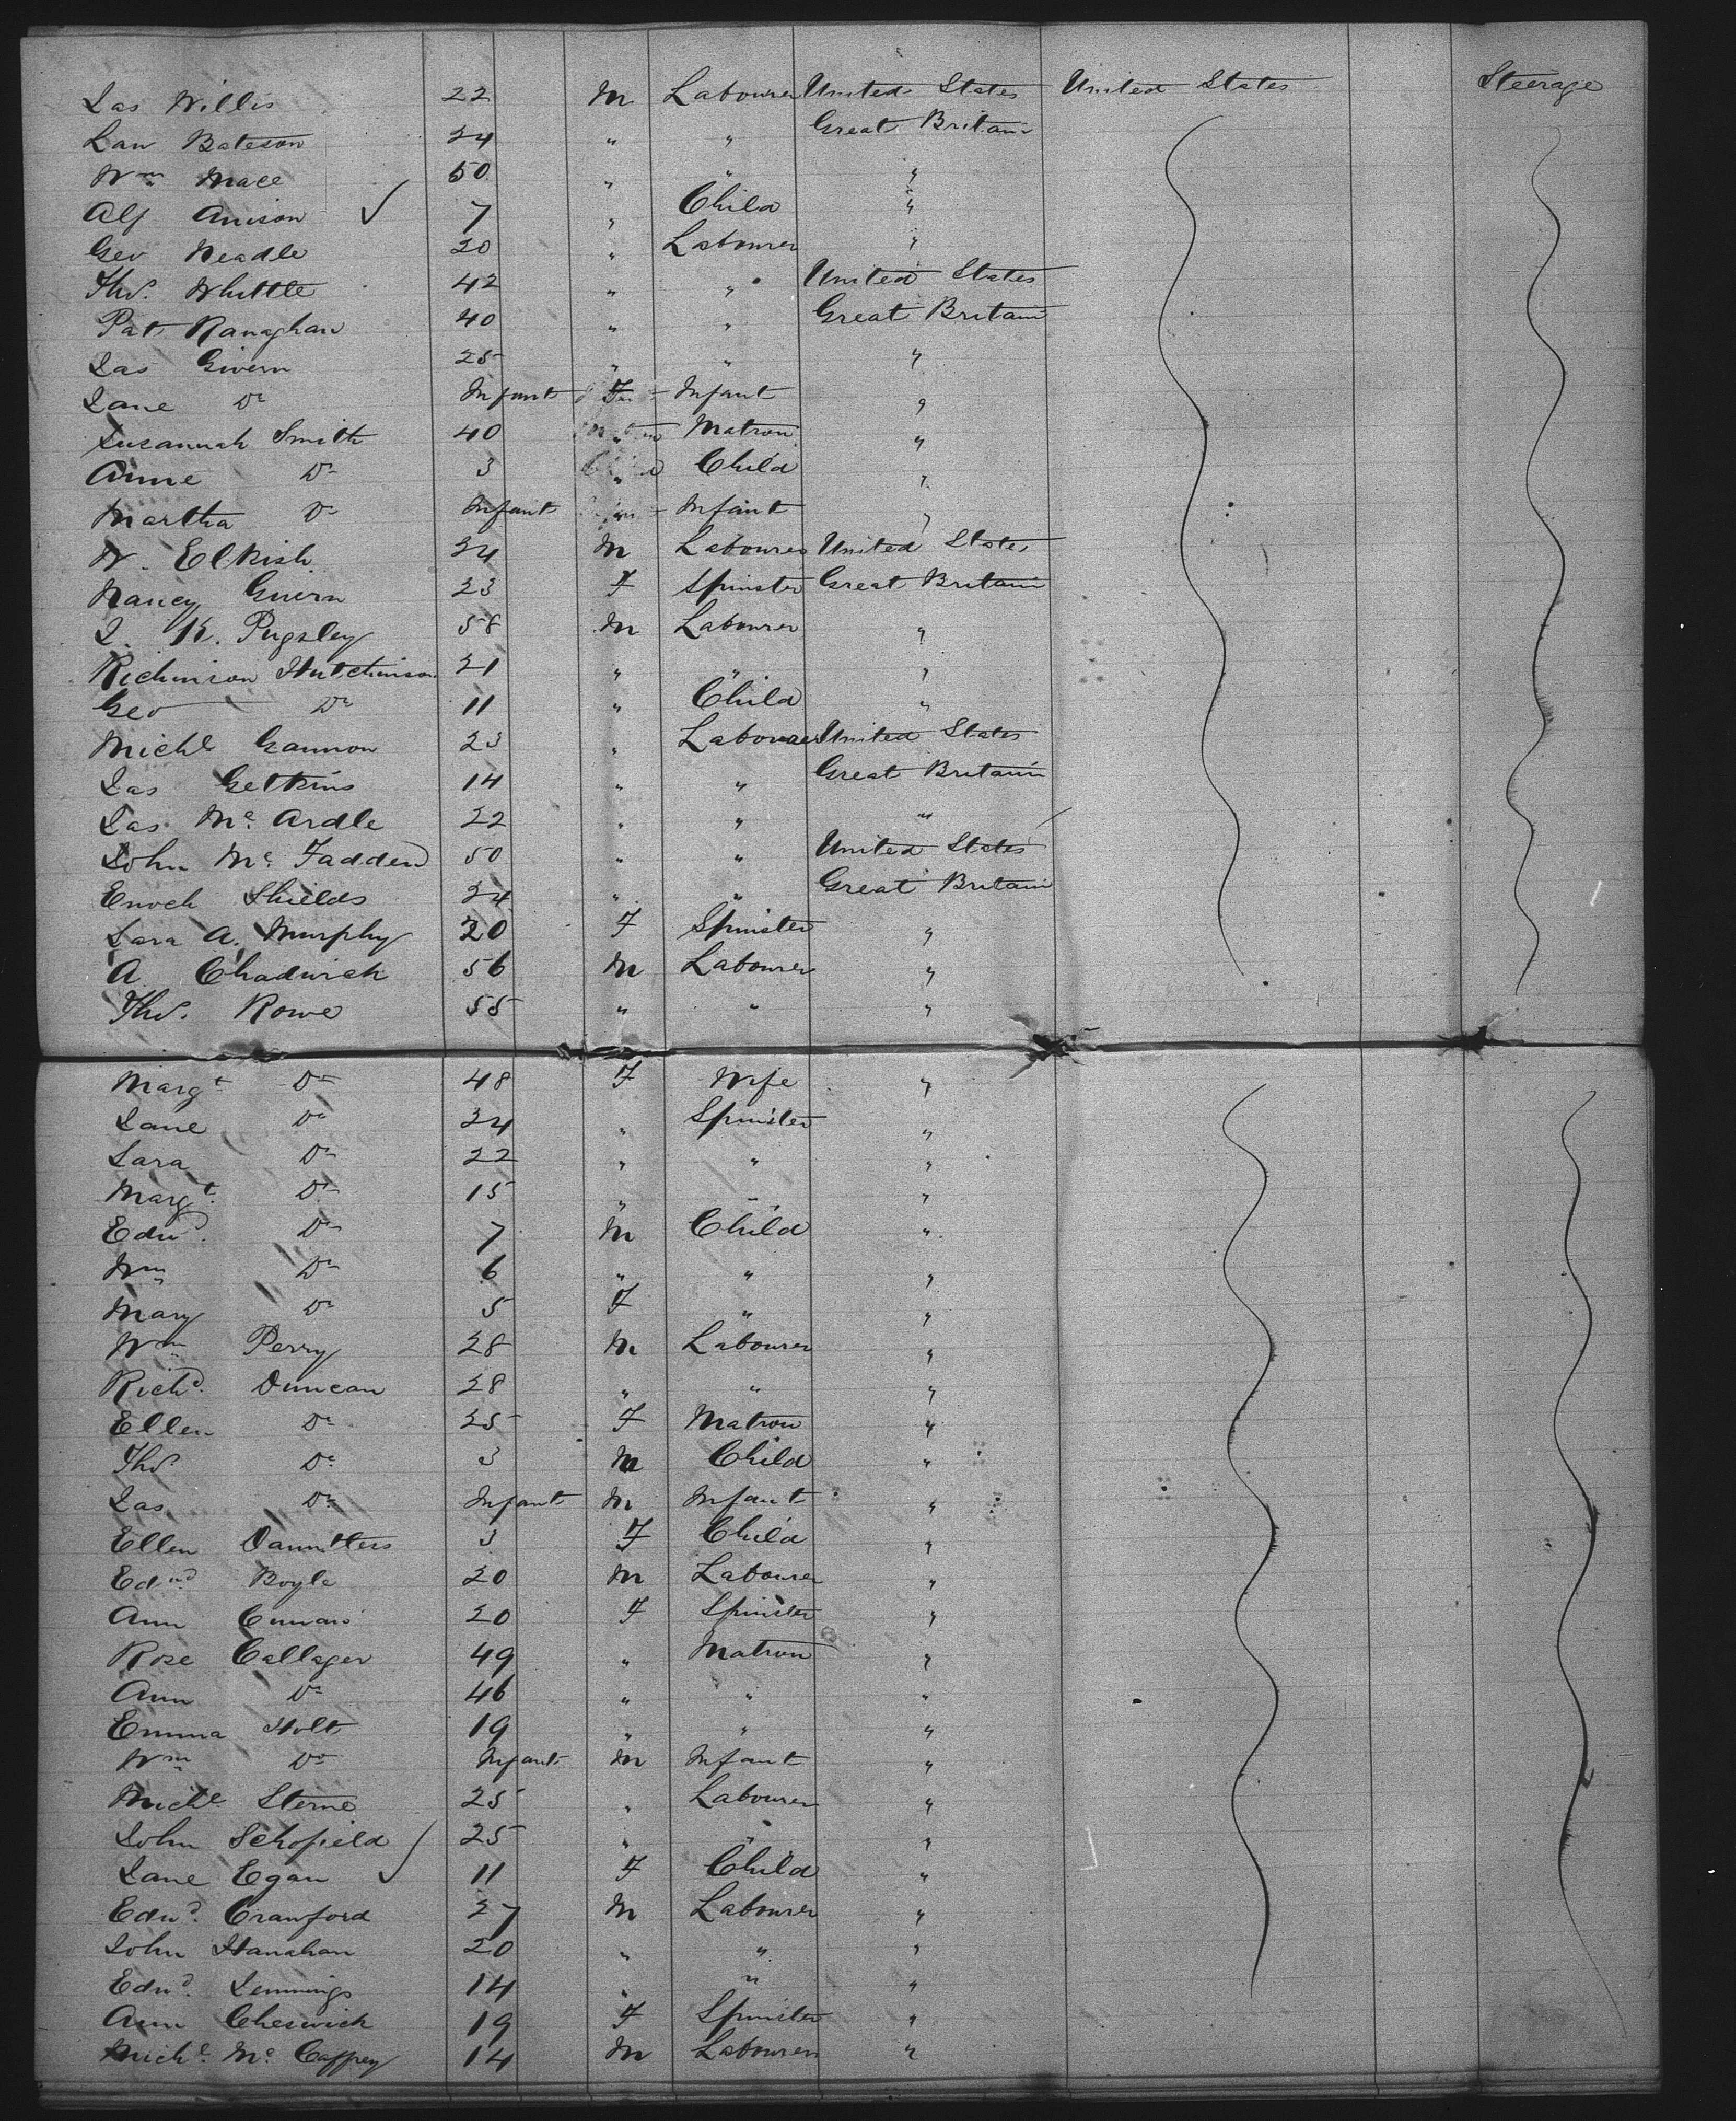 Jas Willis 22 M Labourer United States United States Steerage
Law Bateson 24 " " Great Britain
Wm Mace 50 " " "
Alf Anison ✓ 7 " Child "
Geo Neadle 20 " Labourer "
Thos. Whittle 42 " " United States
Pat Ranaghan 40 " " Great Britain
Jas Givern 25 " " "
Jane Do Infant F Infant "
Susannah Smith 40 " Matron "
Anne Do 3 " Child "
Martha Do Infant " Infant "
W. Elkish 24 M Labourer United States
Nancy Givern 23 F Spinster Great Britain
J. K. Pugsley 58 M Labourer "
Richinson Hutchinson 21 " " "
Geo Do 11 " Child "
Michl Gannon 23 " Labourer United States
Jas Getkins 14 " " Great Britain
Jas Mc Ardle 22 " " "
John Mc Fadden 50 " " United States
Enoch Shields 24 " " Great Britain
Sara A. Murphy 20 F Spinster "
A Chadwick 56 M Labourer "
Thos. Rowe 55 " " "
Margt Do 48 F Wife "
Jane Do 24 " Spinster "
Sara Do 22 " " "
Margt. Do 15 " " "
Edwd. Do 7 M Child "
Wm Do 6 " " "
Mary Do 5 F " "
Wm Perry 28 M Labourer "
Richd. Duncan 28 " " "
Ellen Do 25 F Matron "
Thos. Do 3 M Child "
Jas Do Infant M Infant "
Ellen 3 F Child "
Edmd Boyle 20 M Labourer "
Ann 20 F Spinster "
Rose Callager 49 " Matron "
Ann Do 46 " " "
Emma Holt 19 " " "
Wm Do Infant M Infant "
Michl Sterne 25 " Labourer "
John Schofield ✓ 25 " " "
Jane Egan ✓ 11 F Child "
Edwd. Crawford 27 M Labourer "
John Hanahan 20 " " "
Edwd. Jennings 14 " " "
Ann Cheswick 19 F Spinster "
Michl. Mc Caffrey 14 M Labourer "